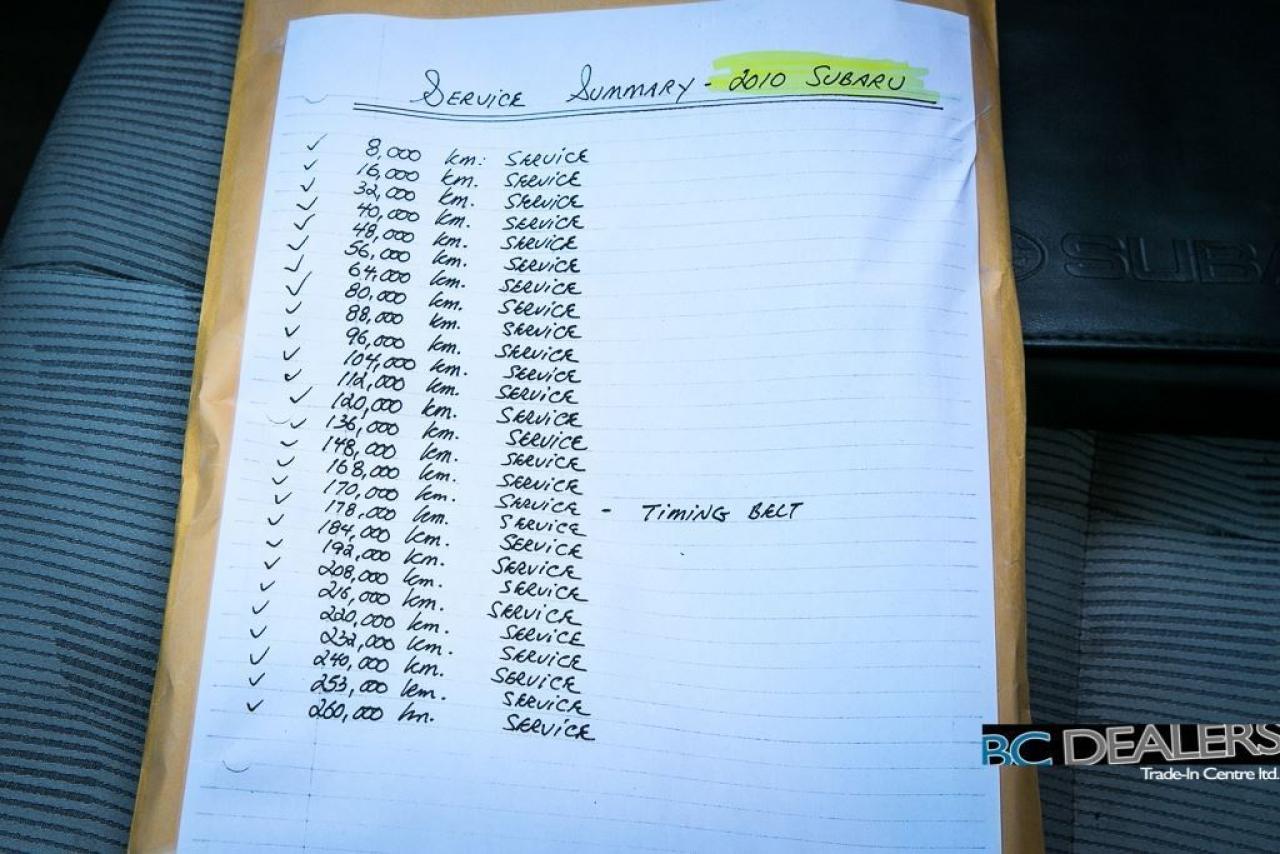 SERVICE SUMMARY - 2010 SUBARU
✓ 8,000 km. SERVICE
✓ 16,000 km. SERVICE
✓ 32,000 km. SERVICE
✓ 40,000 km. SERVICE
✓ 48,000 km. SERVICE
✓ 56,000 km. SERVICE
✓ 64,000 km. SERVICE
✓ 80,000 km. SERVICE
✓ 88,000 km. SERVICE
✓ 96,000 km. SERVICE
✓ 104,000 km. SERVICE
✓ 112,000 km. SERVICE
✓ 120,000 km. SERVICE
✓ 136,000 km. SERVICE
✓ 148,000 km. SERVICE
✓ 168,000 km. SERVICE
✓ 170,000 km. SERVICE - TIMING BELT
✓ 178,000 km. SERVICE
✓ 184,000 km. SERVICE
✓ 192,000 km. SERVICE
✓ 208,000 km. SERVICE
✓ 216,000 km. SERVICE
✓ 220,000 km. SERVICE
✓ 232,000 km. SERVICE
✓ 240,000 km. SERVICE
✓ 253,000 km. SERVICE
✓ 260,000 km. SERVICE
SUBA
BC DEALERS
Trade-In Centre ltd.